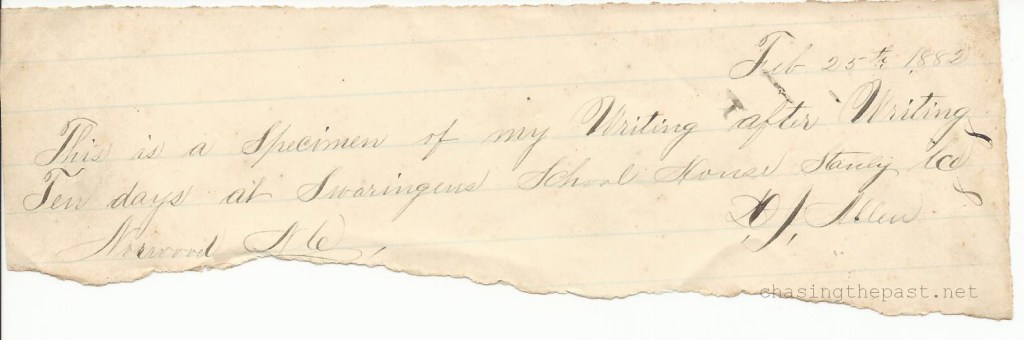 Feb 25th 1882
This is a Specimen of my Writing after Writing
Ten days at Swaringens School House Stanly Co
D. J. Allen
Norwood N C,
chasingthepast.net